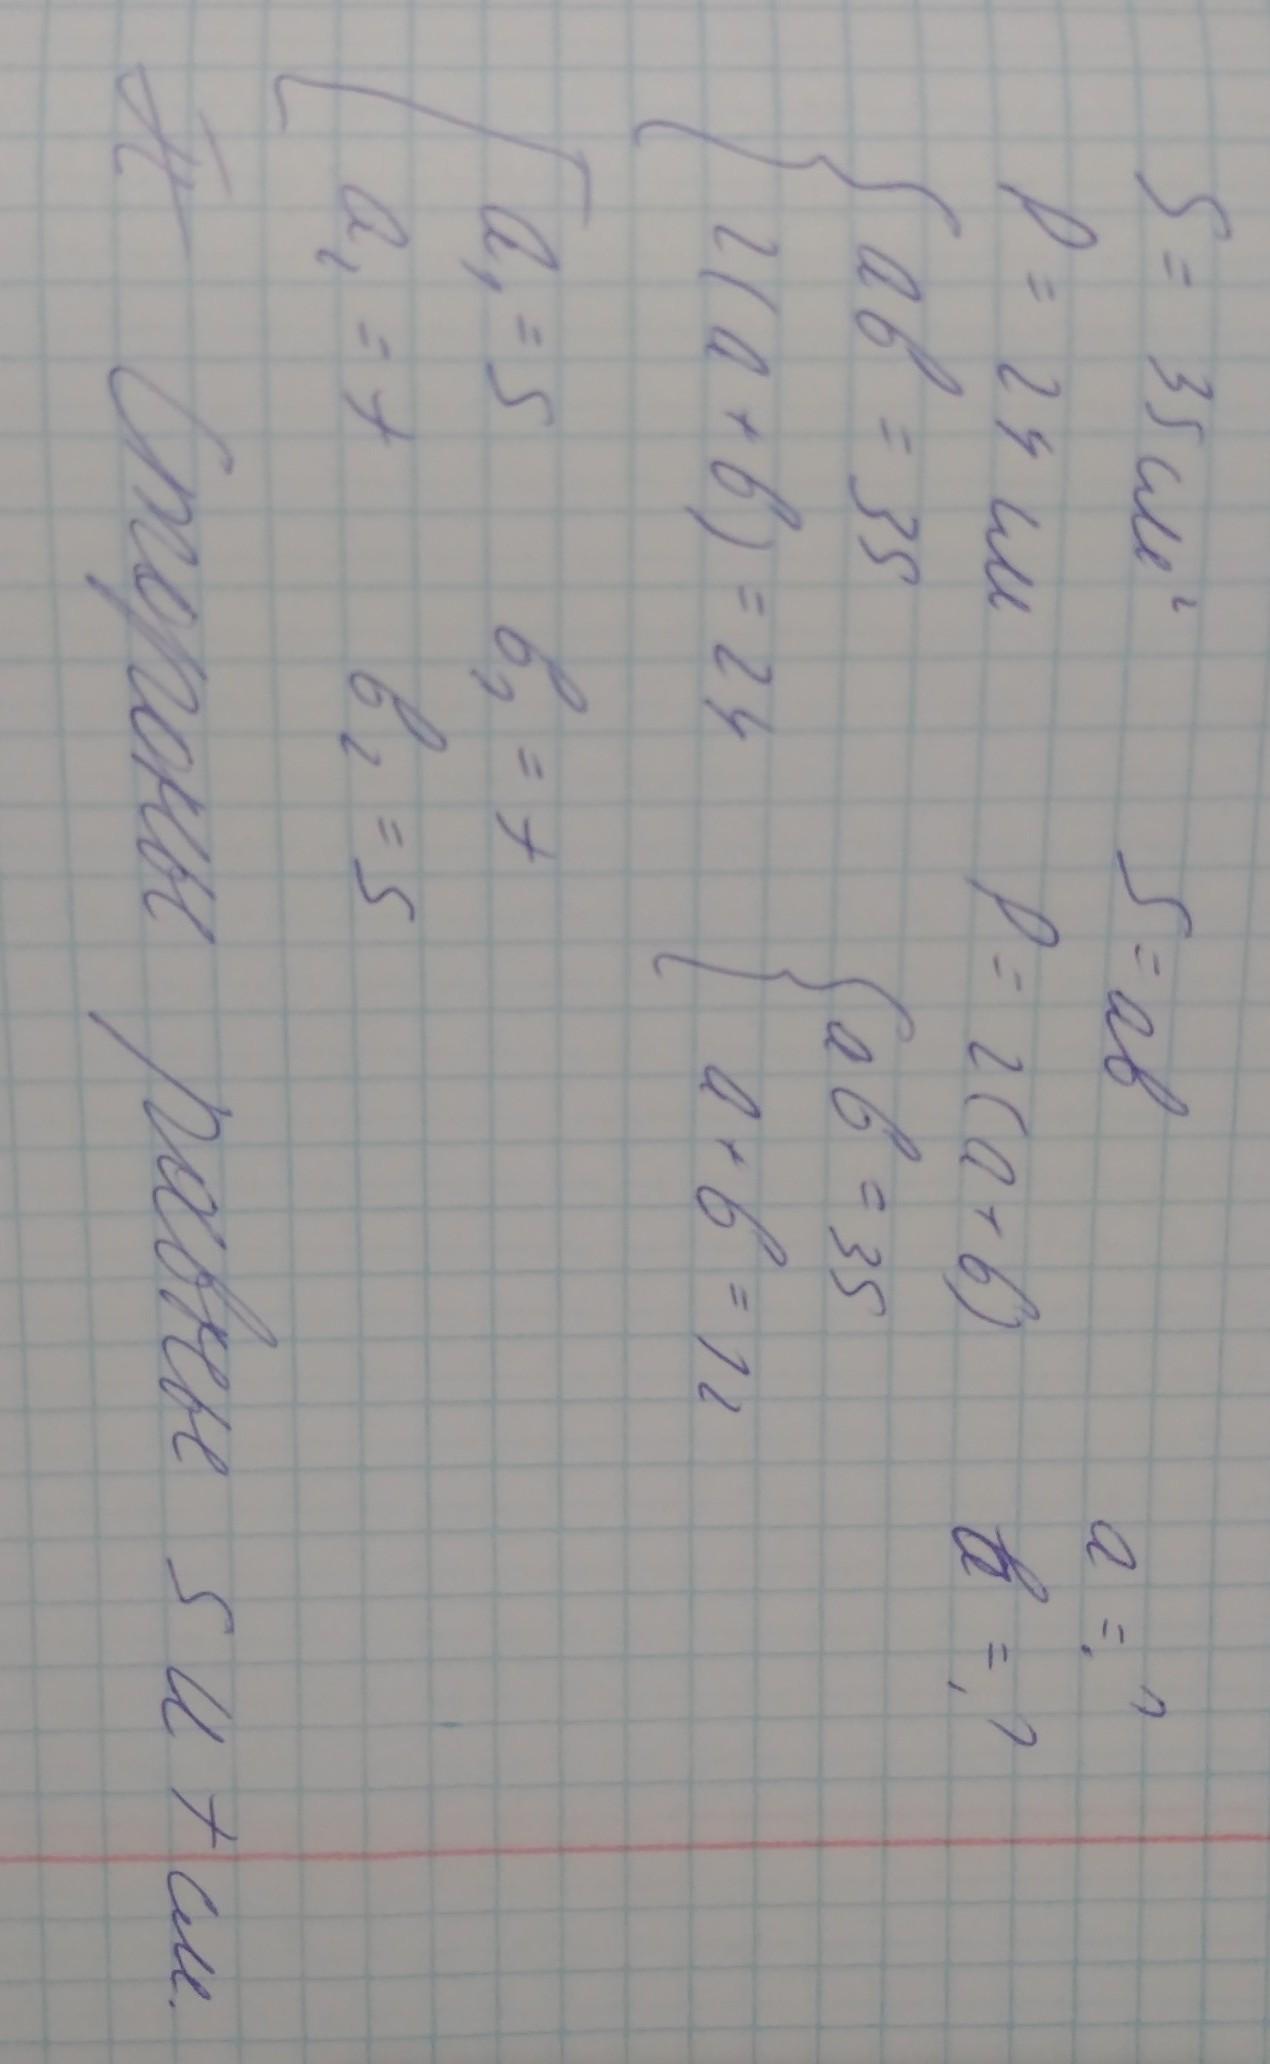 S = 35 см² S = ab a = ?
P = 24 см P = 2(a + b) b = ?
{ ab = 35 { ab = 35
2(a + b) = 24 a + b = 12
[ a₁ = 5 b₁ = 7
a₂ = 7 b₂ = 5
Стороны равны 5 и 7 см.